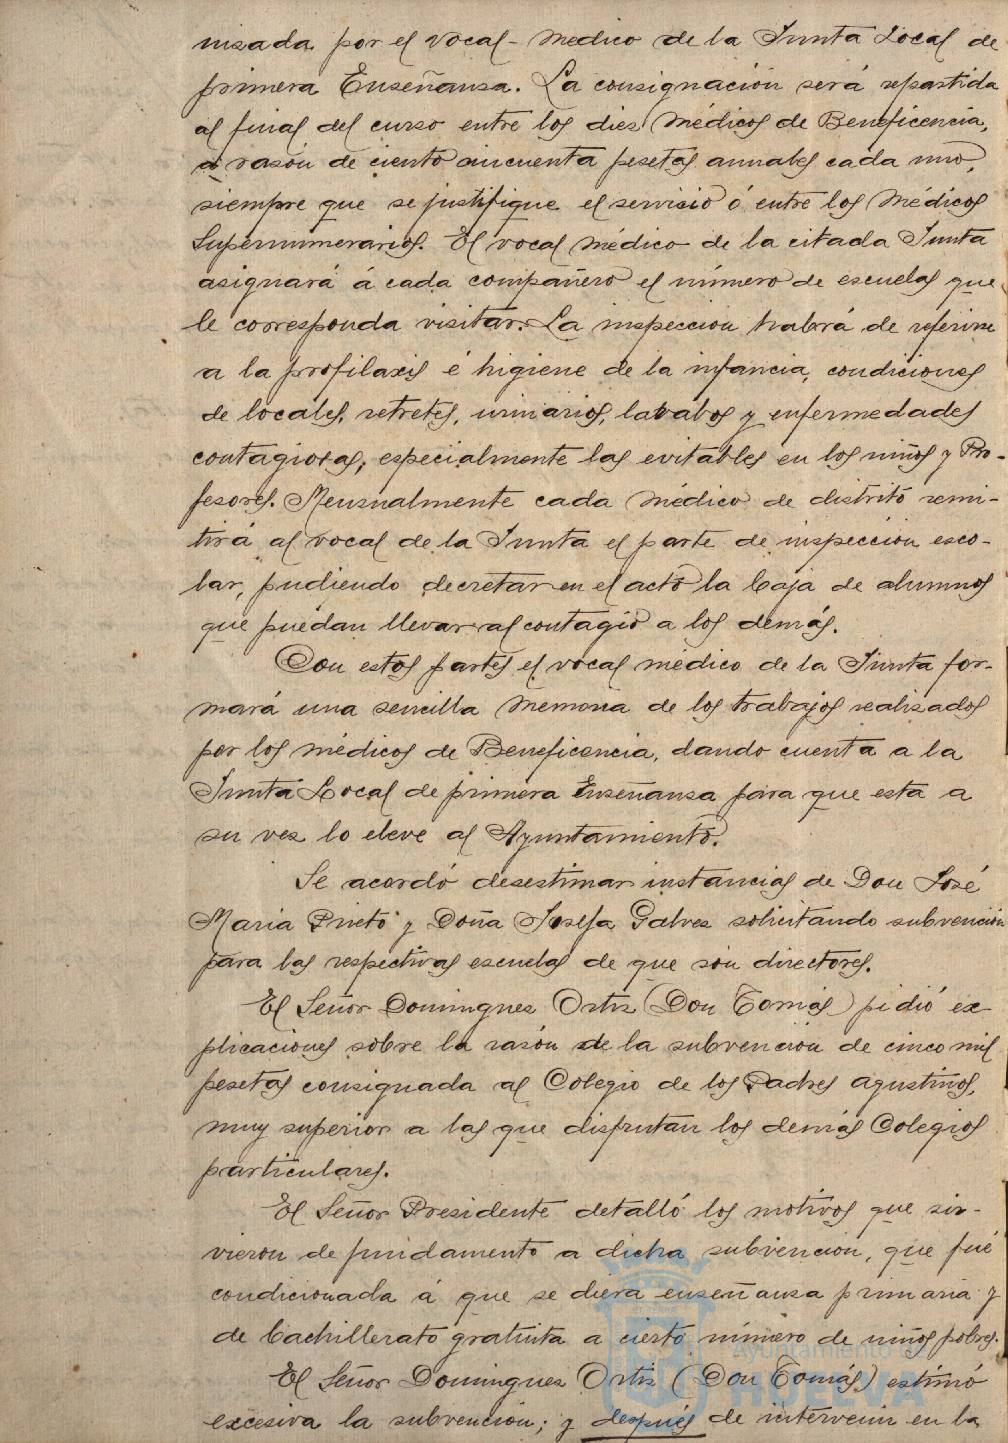 nizada por el vocal-médico de la Junta Local de
primera Enseñanza. La consignación será repartida
al final del curso entre los diez Médicos de Beneficencia,
a razón de ciento cincuenta pesetas anuales cada uno,
siempre que se justifique el servicio ó entre los Médicos
Supernumerarios. El vocal médico de la citada Junta
asignará á cada compañero el número de escuelas que
le corresponda visitar. La inspección habrá de referirse
a la profilaxis é higiene de la infancia, condiciones
de locales, retretes, urinarios, lavabos y enfermedades
contagiosas, especialmente las evitables en los niños y Pro-
fesores. Mensualmente cada Médico de distrito remi-
tirá al vocal de la Junta el parte de inspección esco-
lar, pudiendo decretar en el acto la baja de alumnos
que puedan llevar al contagio a los demás.
Con estos partes el vocal médico de la Junta for-
mará una sencilla Memoria de los trabajos realizados
por los médicos de Beneficencia, dando cuenta a la
Junta Local de primera Enseñanza para que esta a
su vez lo eleve al Ayuntamiento.
Se acordó desestimar instancias de Don José
Maria Prieto y Doña Josefa Galvez solicitando subvención
para las respectivas escuelas de que son directores.
El Señor Dominguez Ortiz (Don Tomás) pidió ex-
plicaciones sobre la razón de la subvención de cinco mil
pesetas consignada al Colegio de los Padres Agustinos,
muy superior a las que disfrutan los demás Colegios
particulares.
El Señor Presidente detalló los motivos que sir-
vieron de fundamento a dicha subvención, que fué
condicionada á que se diera enseñanza primaria y
de bachillerato gratuita a cierto número de niños pobres.
Ayuntamiento de
El Señor Dominguez Ortiz (Don Tomás) estimó
HUELVA
excesiva la subvención; y después de intervenir en la